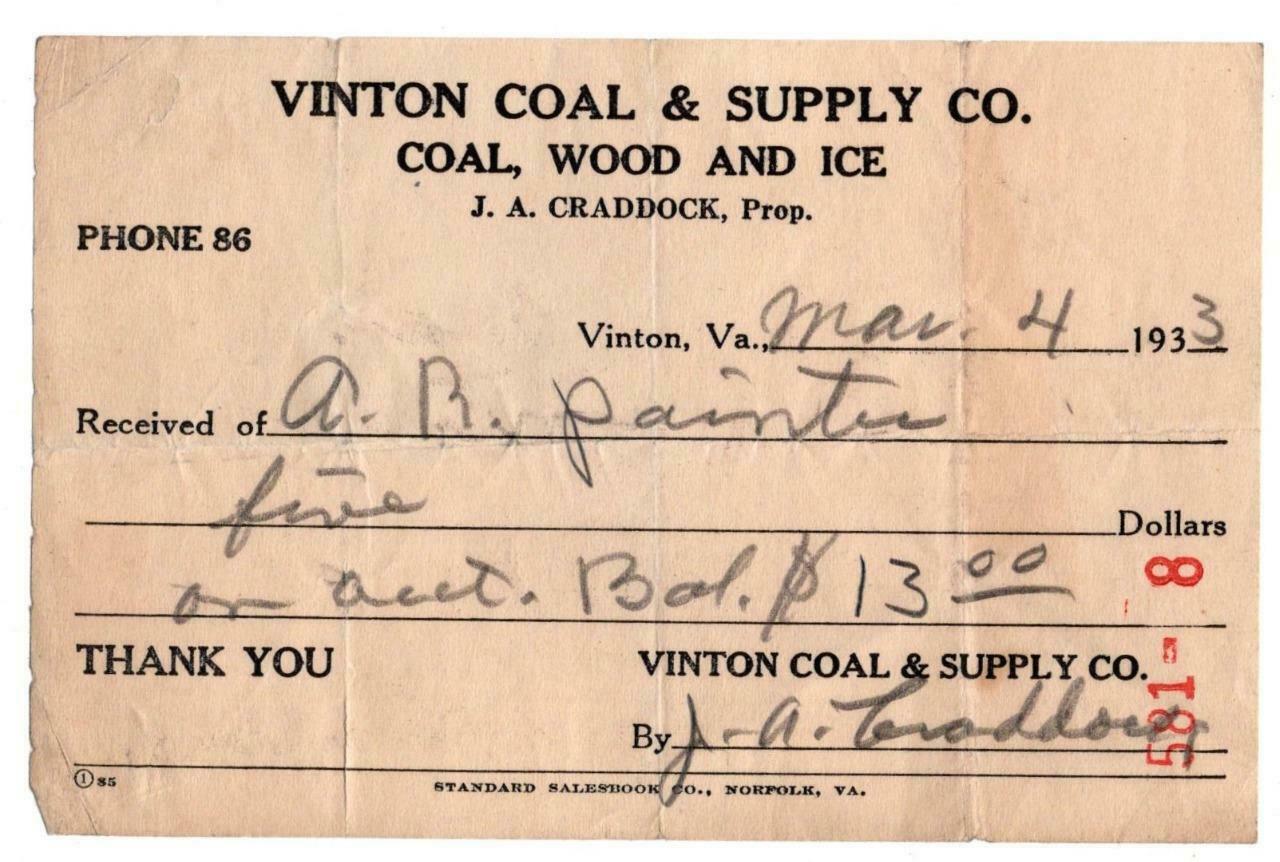 VINTON COAL & SUPPLY CO.
COAL, WOOD AND ICE
J. A. CRADDOCK, Prop.
PHONE 86
Vinton, Va., Mar. 4 1933
Received of A. R. Painter
five Dollars
on acct. Bal. $13 00
THANK YOU VINTON COAL & SUPPLY CO.
By J. A. Craddock
1 85 STANDARD SALESBOOK CO., NORFOLK, VA.
581- 8